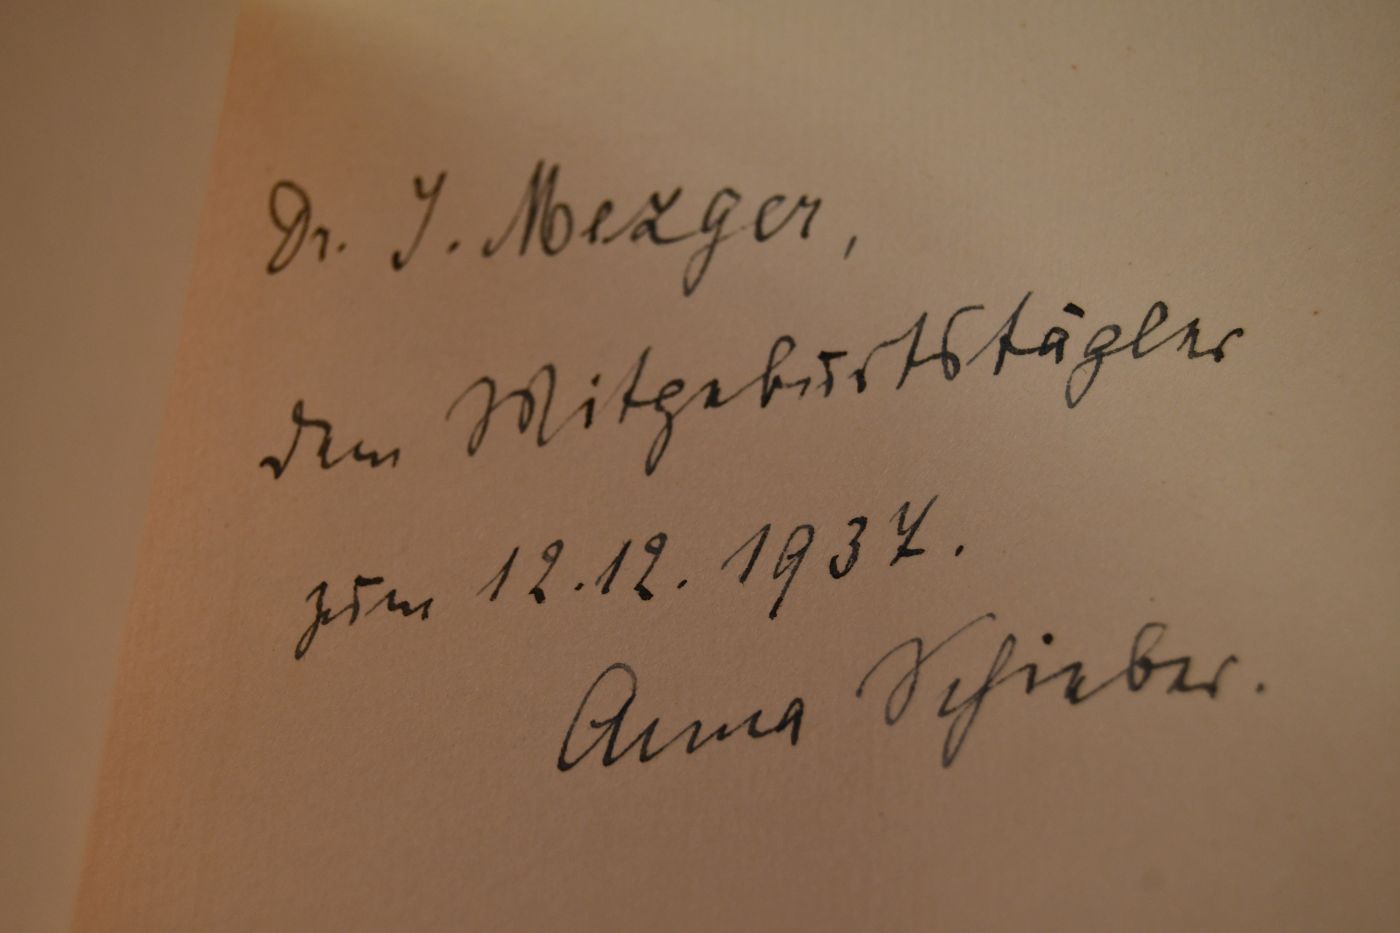 Dr. J. Mezger,
dem Mitgeburtstägler
zum 12.12.1937.
Anna Schieber.